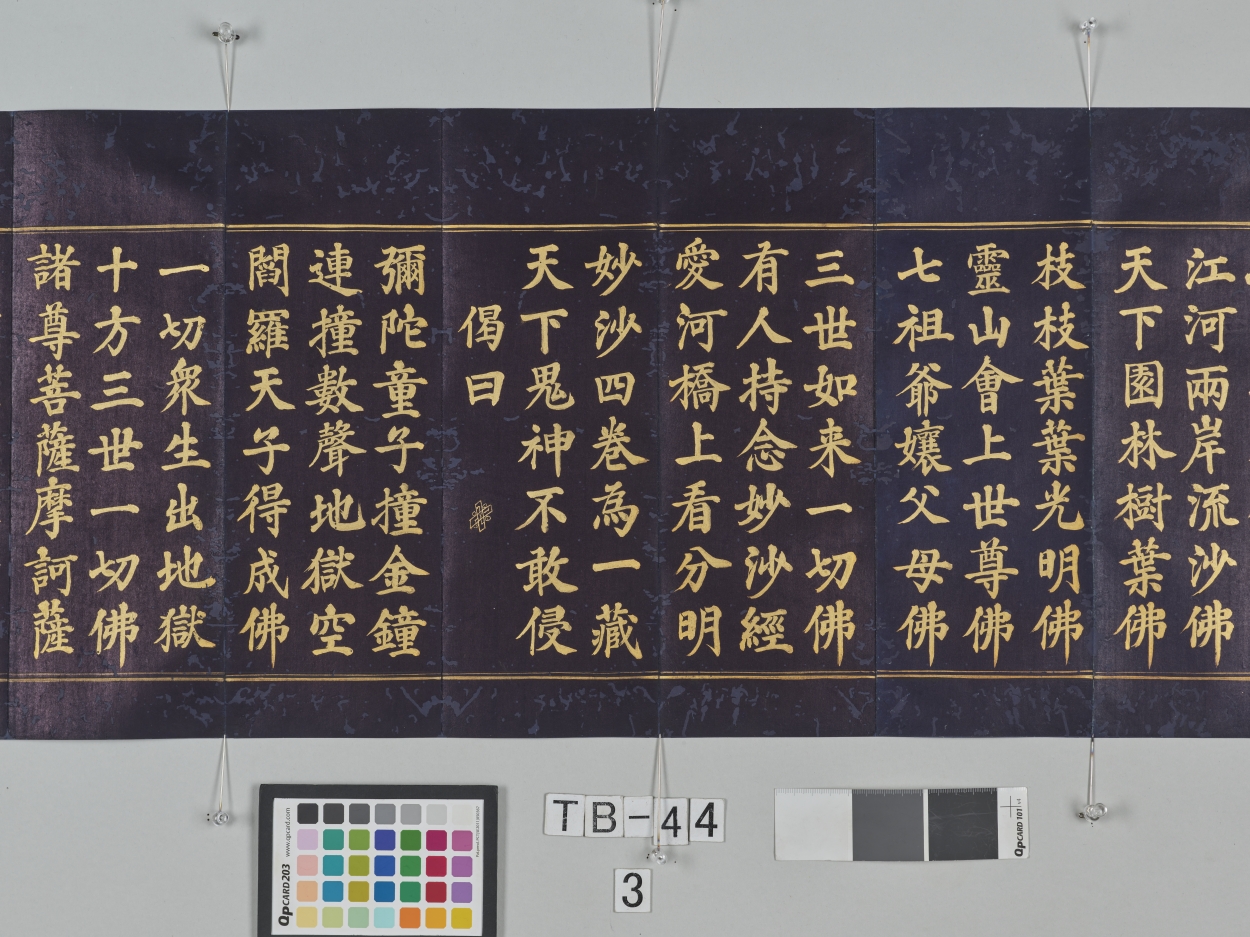 江河兩岸流沙佛
天下園林樹葉佛
枝枝葉葉光明佛
靈山會上世尊佛
七祖爺孃父母佛
三世如来一切佛
有人持念妙沙經
愛河橋上看分明
妙沙四卷為一藏
天下鬼神不敢侵
偈曰
彌陀童子撞金鐘
連撞數聲地獄空
閻羅天子得成佛
一切衆生出地獄
十方三世一切佛
諸尊菩薩摩訶薩
QpCARD 203
www.qpcard.com
TB-44
3
QpCARD 101